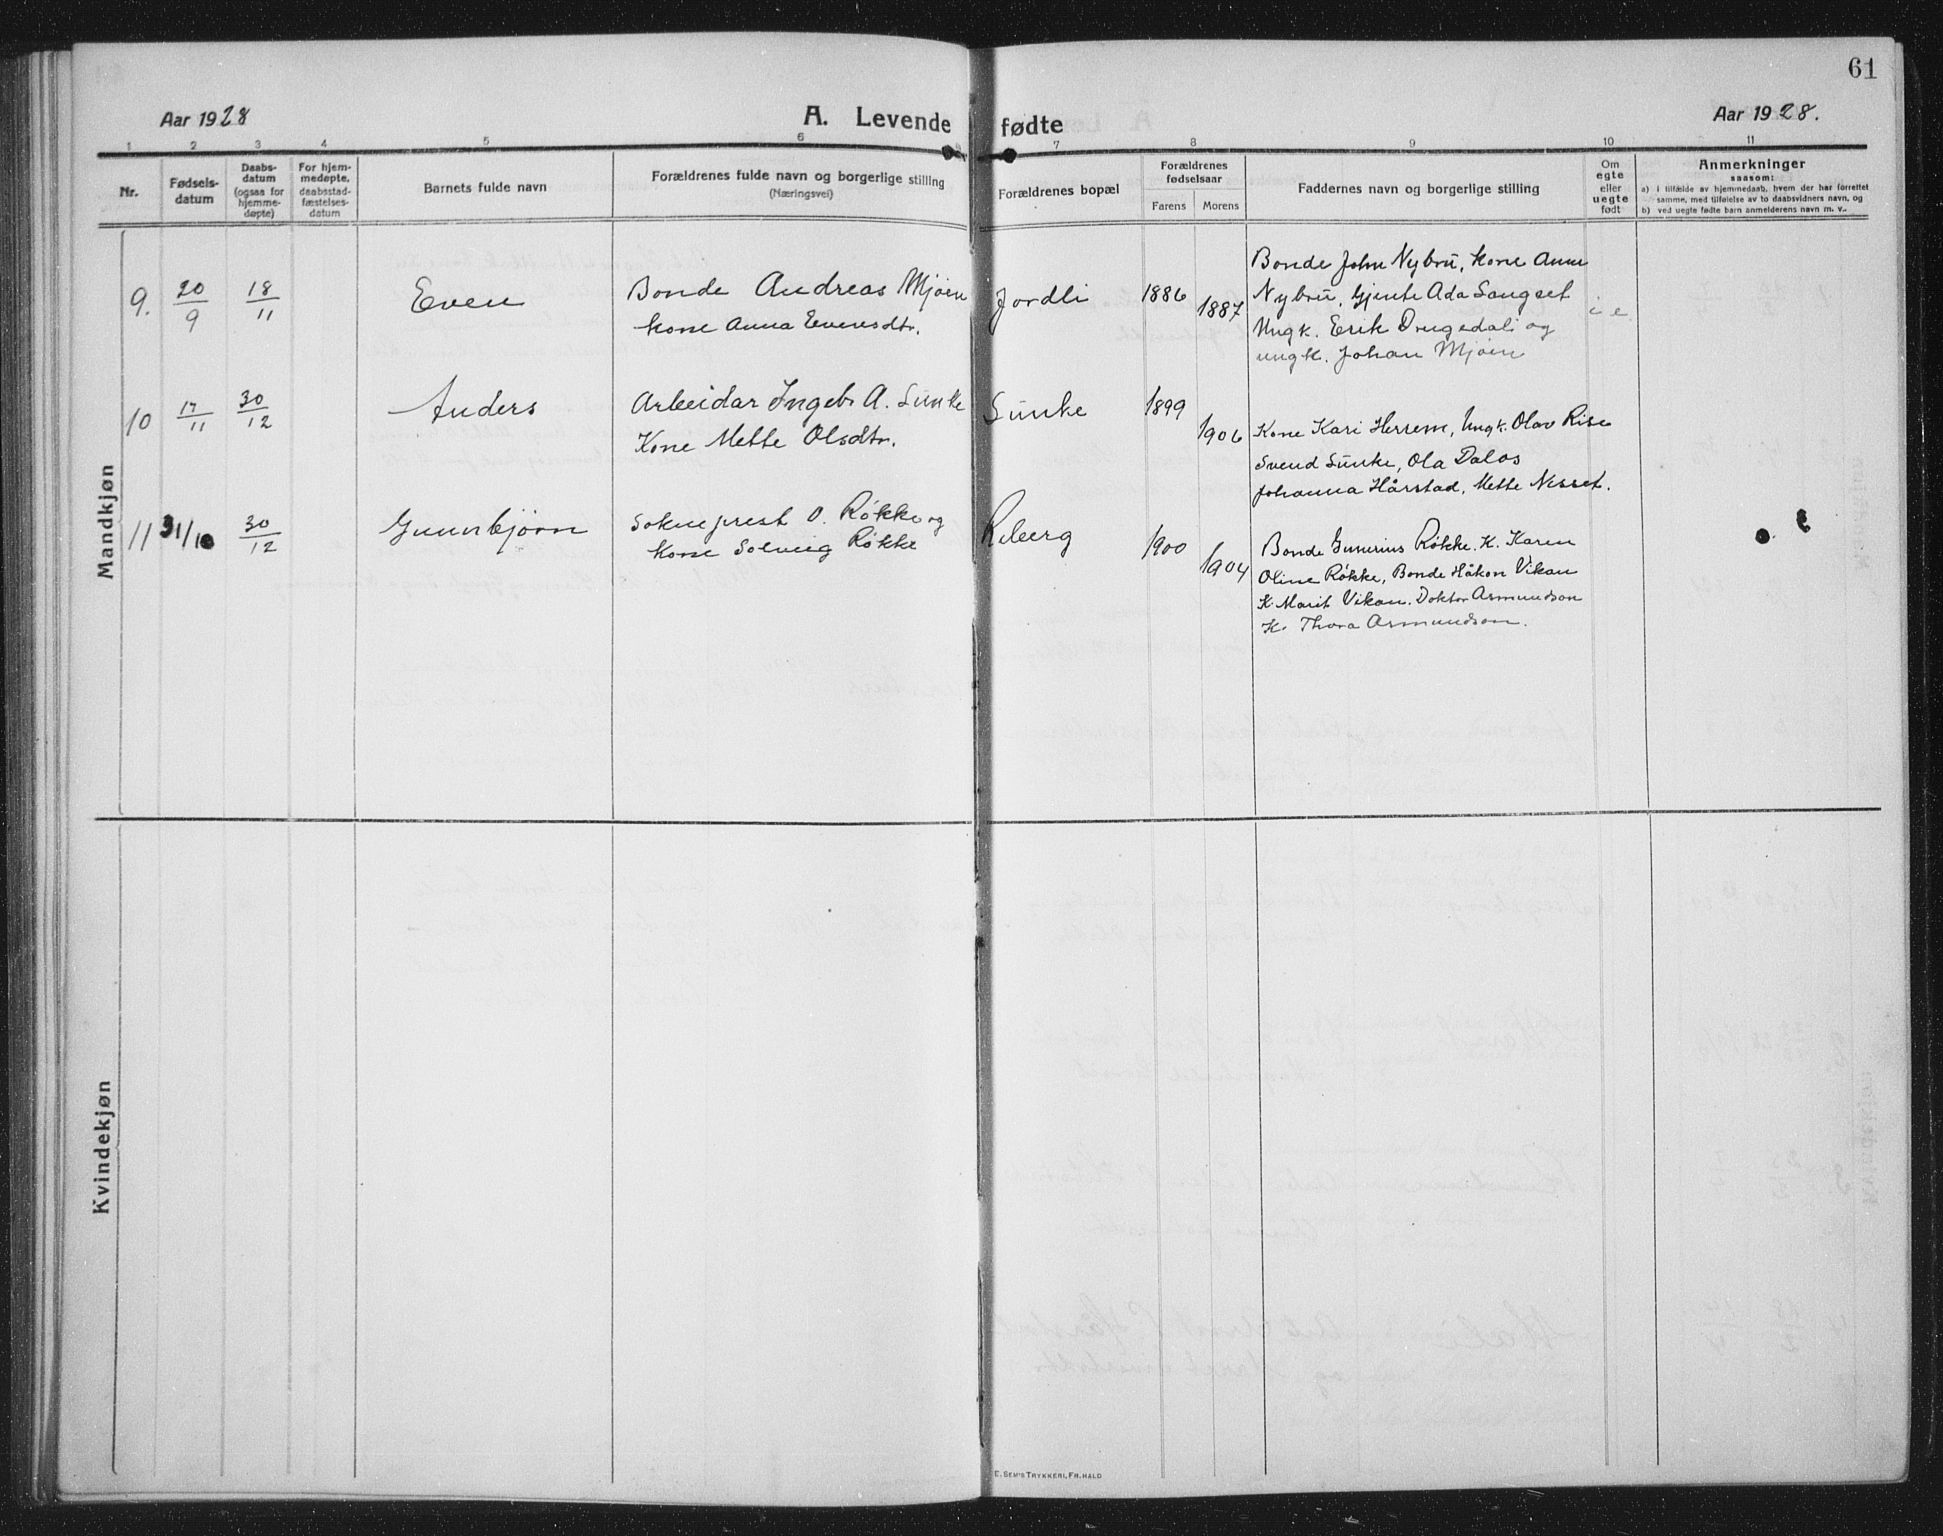 61
Aar 1928
A. Levende fødte
Aar 1928.
1 2 3 4 5 6 7 8 9 10 11
Nr.
Fødsels-
datum
Daabs-
datum
(ogsaa for
hjemme-
døpte)
For hjem-
medøpte,
daabsstad-
fæstelses-
datum
Barnets fulde navn
Forældrenes fulde navn og borgerlige stilling
(Næringsvei)
Forældrenes bopæl
Forældrenes
fødselsaar
Farens Morens
Faddernes navn og borgerlige stilling
Om
egte
eller
uegte
født
Anmerkninger
saasom:
a) i tilfælde av hjemmedaab, hvem der har forrettet
samme, med tilføielse av to daabsvidners navn, og
b) ved uegte fødte barn anmelderens navn m. v.
Mandkjøn
9.
20/9
18/11
Even
Bonde Andreas Mjøen
Kone Anna Evensdtr.
Jordli
1886
1887
Bonde John Nybrú, Kone Anne
Nybrú, Gjente Ada Sangset
Ungk. Erik Drugedali og
ungk. Johan Mjøen
i e.
10
17/11
30/12
Anders
Arbeidar Ingebr A. Sunke
Kone Mette Olsdtr.
Sunke
1899
1906
Kone Kari Herrem, Ungk. Olav Rise
Svend Sunke, Ola Dalos
Johanna Hårstad, Mette Nesset.
11
31/10
30/12
Gunnbjørn
Sokneprest O. Røkke og
Kone Solveig Røkke
Reberg
1900
1904
Bonde Gunerius Røkke. K. Karen
Oline Røkke, Bonde Håkon Vikan
K. Marit Vikan. Doktor Asmundson
K. Thora Asmundson.
Kvindekjøn
E. Sem's Trykkeri, Fr.hald